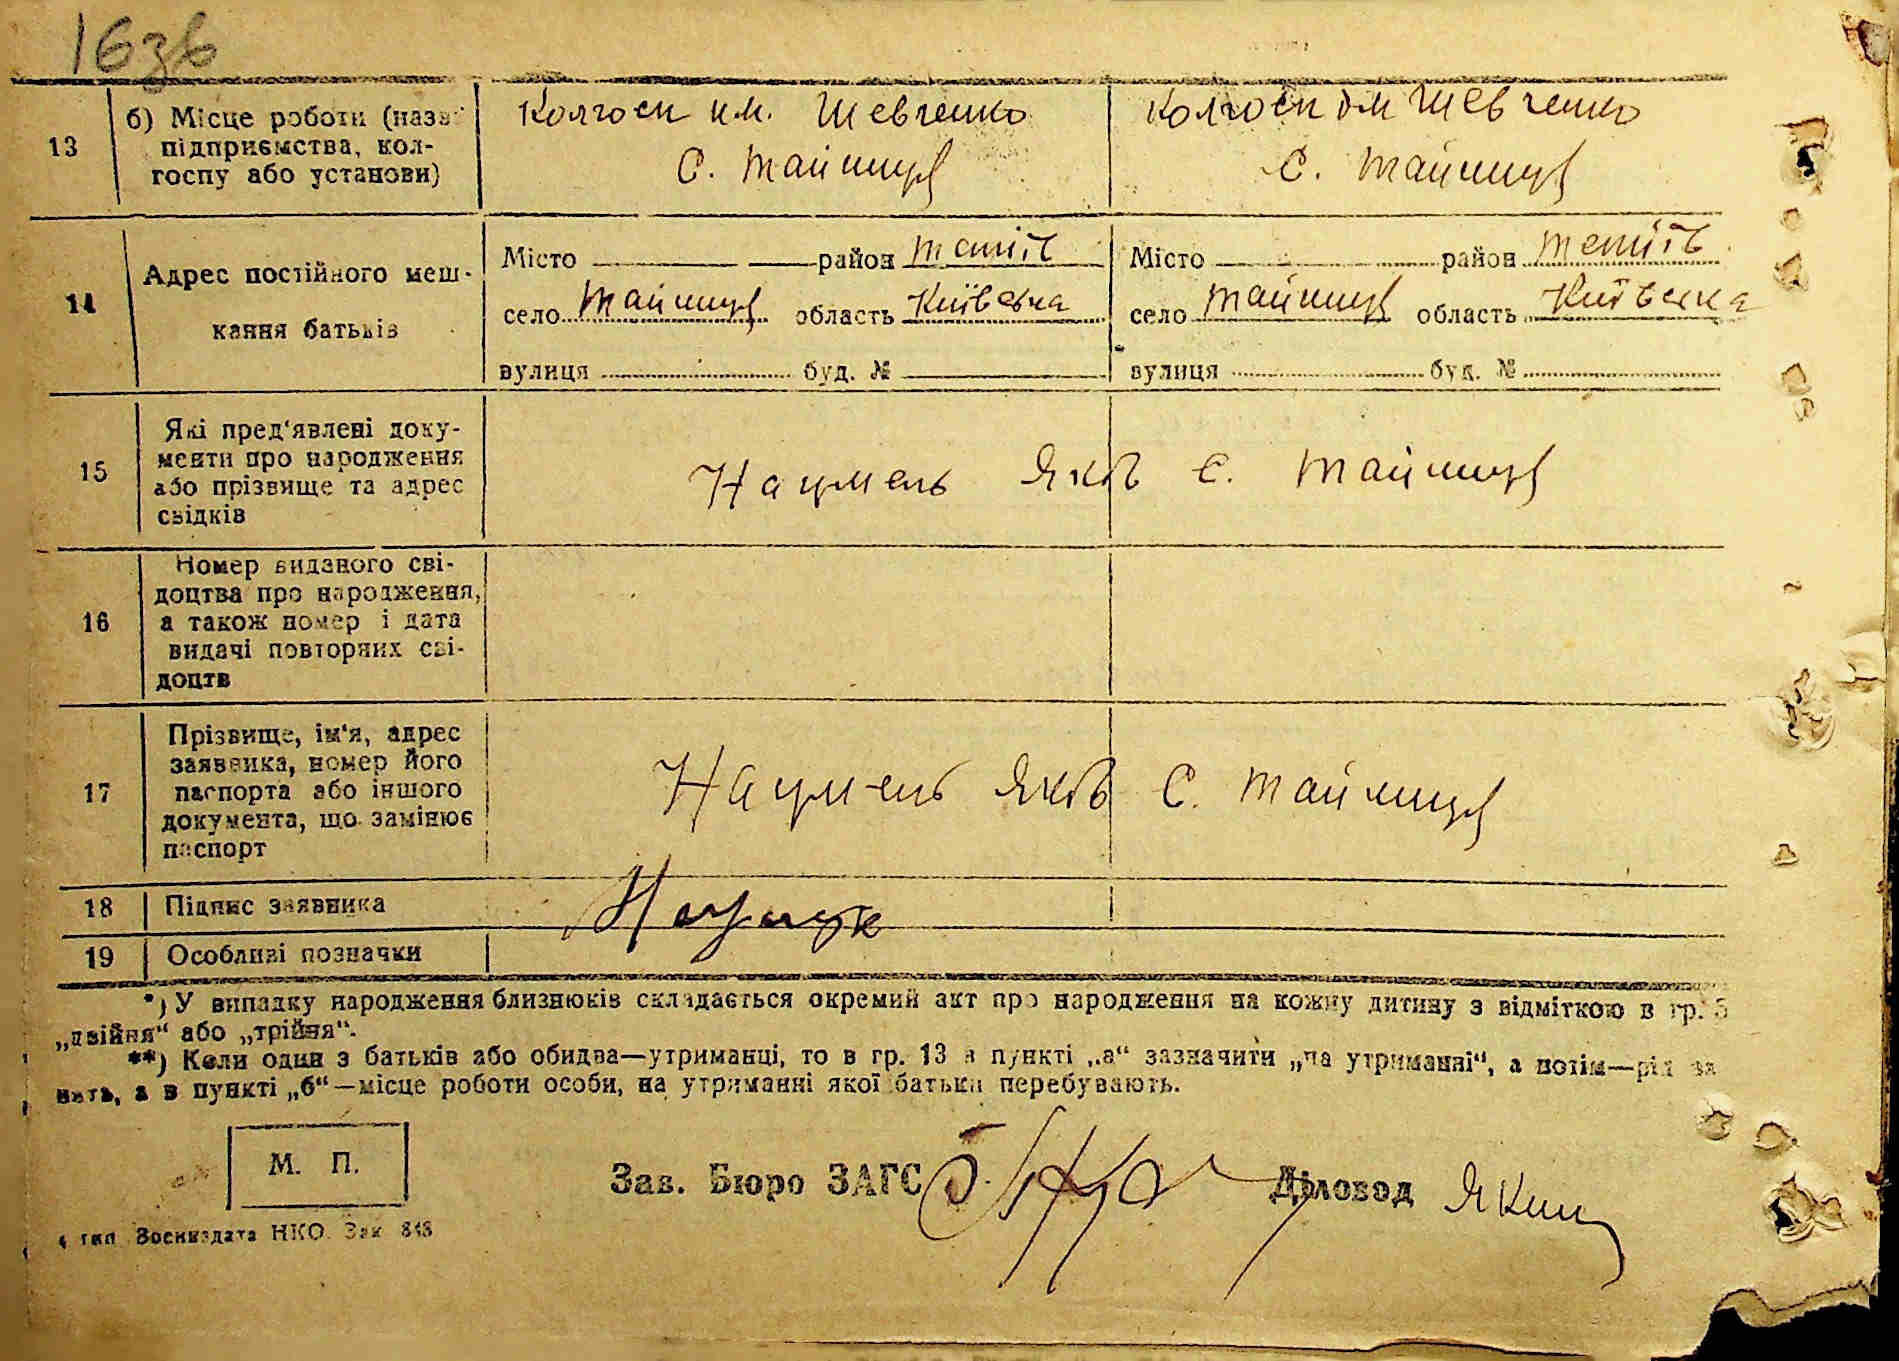 16зв
13
б) Місце роботи (назва
підприємства, кол-
госпу або установи)
Колгосп им. Шевченко
С. Тайниця
Колгосп им Шевченко
С. Тайниця
14
Адрес постійного меш-
кання батьків
Місто район Тетіїв
село Тайниця область Київська
вулиця буд. №
Місто район Тетіїв
село Тайниця область Київська
вулиця буд. №
15
Які пред'явлені доку-
менти про народження
або прізвище та адрес
свідків
Наумель Яків С. Тайниця
16
Номер виданого сві-
доцтва про народження,
а також номер і дата
видачі повторних сві-
доцтв
17
Прізвище, ім'я, адрес
заявника, номер його
паспорта або іншого
документа, що замінює
паспорт
Наумель Яків С. Тайниця
18
Підпис заявника
19
Особливі позначки
*) У випадку народження близнюків складається окремий акт про народження на кожну дитину з відміткою в гр. 5
„двійня“ або „трійня“.
**) Коли один з батьків або обидва—утриманці, то в гр. 13 в пункті „а“ зазначити „на утриманні“, а потім—рід за
нять, а в пункті „б“—місце роботи особи, на утриманні якої батьки перебувають.
М. П.
Зав. Бюро ЗАГС
Діловод
4 тип Воениздата НКО. Зак 848